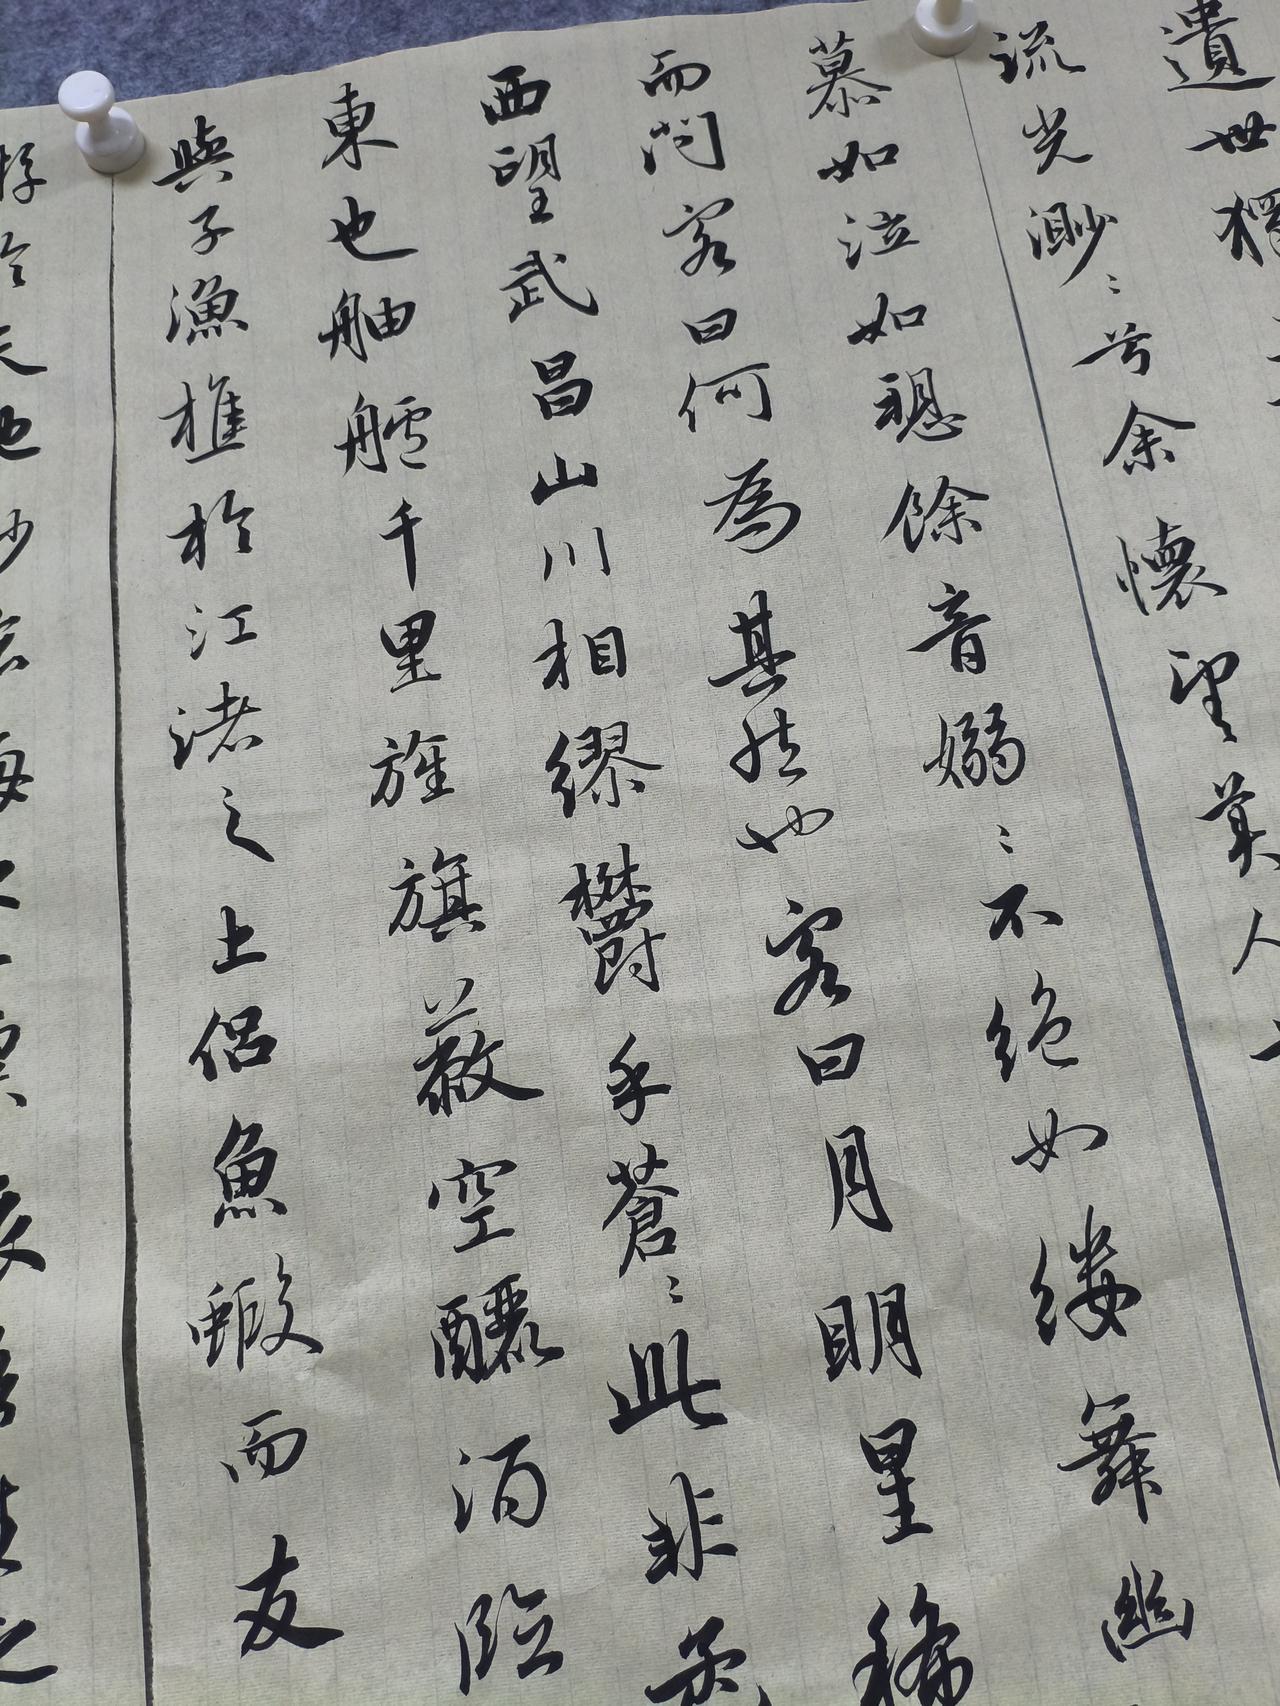 遺世獨
流光渺〻兮余懷望美人
慕如泣如愬餘音嫋〻不絕如縷舞幽
而問客曰何為其然也客曰月明星稀
西望武昌山川相繆鬱乎蒼〻此非孟
東也舳艫千里旌旗蔽空釃酒臨
與子漁樵於江渚之上侶魚蝦而友
於天地渺滄海之一粟哀吾生之